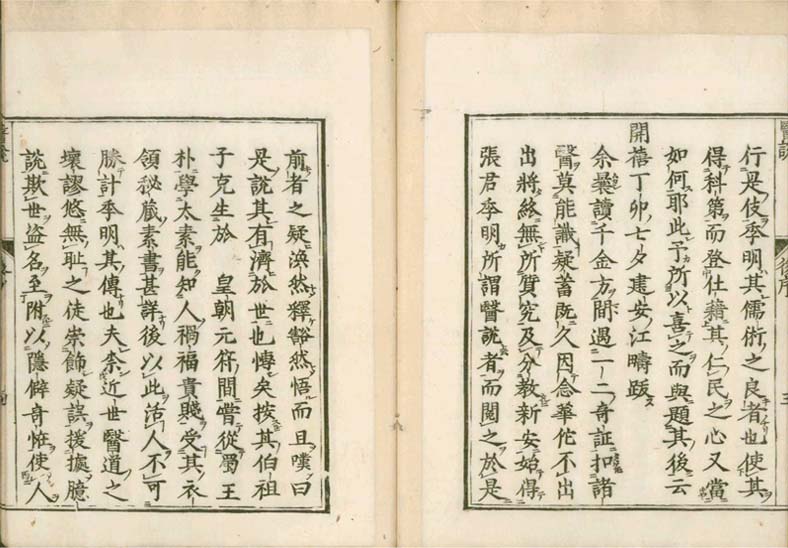 行是伎季明其儒術之良者也使其
得科第而登仕籍其仁民之心又當
如何耶此予所以喜之而與題其後云
開禧丁卯七夕建安江疇跋
余曩讀千金方間遇一二奇証扣諸
醫莫能識疑蓄既久因念華佗不出
出將終無所質究及分教新安始得
張君季明所謂醫說者而閱之於是
前者之疑渙然釋豁然悟而且嘆曰
是說其有濟於世也慱矣按其伯祖
子克生於 皇朝元符間嘗從蜀王
朴學太素能知人禍福貴賤受其衣
領秘藏素書甚詳後以此活人不可
勝計季明其傳也夫柰近世醫道之
壞謬悠無恥之徒崇飾疑誤援據臆
說欺世盜名至附以隱僻奇怪使人